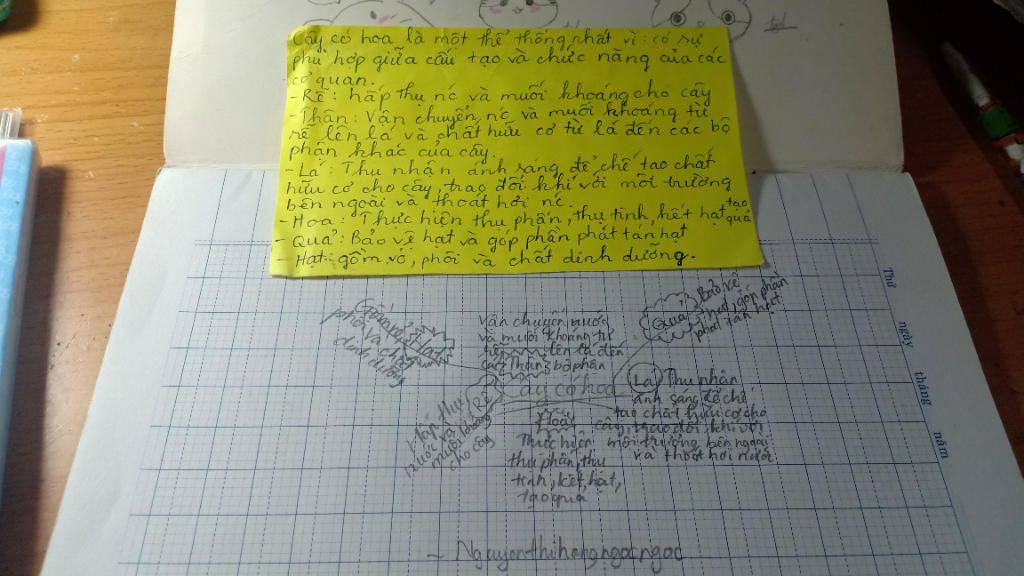 Cây có hoa là một thể thống nhất vì: có sự
phù hợp giữa cấu tạo và chức năng của các
cơ quan.
- Rễ: hấp thụ nc và muối khoáng cho cây
- Thân: Vận chuyển nc và muối khoáng từ
rễ lên lá và chất hữu cơ từ lá đến các bộ
phận khác của cây.
- Lá: Thu nhận ánh sáng để chế tạo chất
hữu cơ cho cây, trao đổi khí với môi trường
bên ngoài và thoát hơi nc.
- Hoa: Thực hiện thụ phấn, thụ tinh, kết hạt tạo quả
- Quả: Bảo vệ hạt và góp phần phát tán hạt
- Hạt: gồm vỏ, phôi và chất dinh dưỡng.
Thứ ngày tháng năm
Quả
Bảo vệ
hạt, góp phần
phát tán hạt
Vận chuyển nước
và muối khoáng từ
lên lá đến
các Thân bộ phận
Gồm vỏ
phôi và chất
dinh dưỡng
Hạt
Cây có hoa
Rễ
Hấp thụ
nước và
muối khoáng
cho cây
Lá Thu nhận
ánh sáng để chế
tạo chất hữu cơ cho
cây, trao đổi khí với
môi trường bên ngoài
và thoát hơi nước
Hoa
Thực hiện
thụ phấn, thụ
tinh, kết hạt,
tạo quả
- Nguyenthihongngocngoc